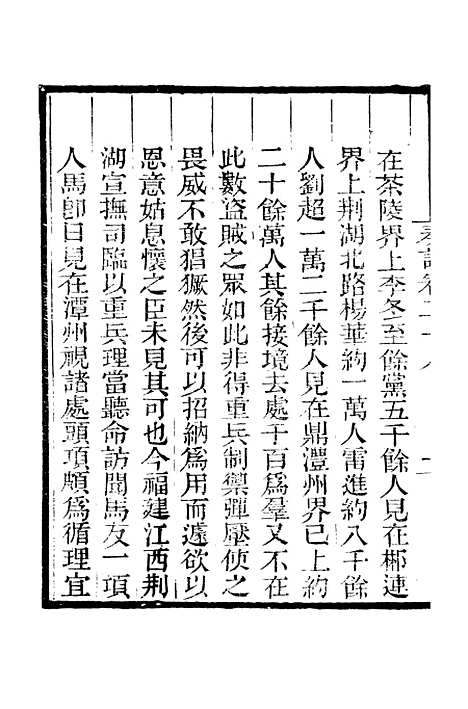 在茶陵界上李冬至餘黨五千餘人見在郴連
界上荆湖北路楊華約一萬人雷進約八千餘
人劉超一萬二千餘人見在鼎澧州界已上約
二十餘萬人其餘接境去處千百爲羣又不在
此數盜賊之眾如此非得重兵制禦彈壓使之
畏威不敢猖獗然後可以招納爲用而遽欲以
恩意姑息懷之臣未見其可也今福建江西荆
湖宣撫司臨以重兵理當聽命訪聞馬友一項
人馬卽日見在潭州視諸處頭項頗爲循理宜